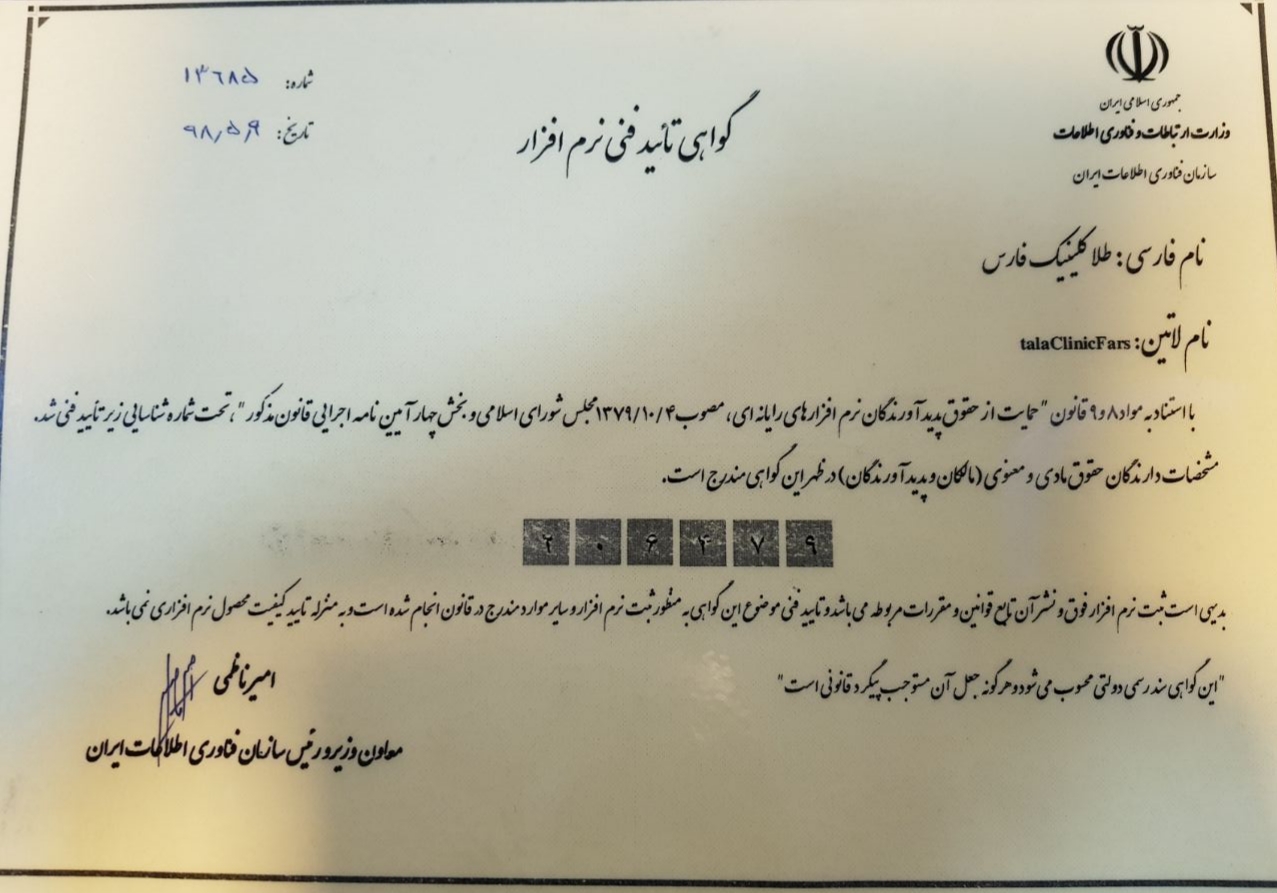 جمهوری اسلامی ایران
وزارت ارتباطات و فناوری اطلاعات
سازمان فناوری اطلاعات ایران
شماره: ۱۳۶۸۵
تاریخ: ۹۸/۵/۹
گواهی تأئید فنی نرم افزار
نام فارسی: طلا کلینیک فارس
نام لاتین: talaClinicFars
با استناد به مواد ۸ و ۹ قانون "حمایت از حقوق پدید آورندگان نرم افزارهای رایانه ای، مصوب ۱۳۷۹/۱۰/۴ مجلس شورای اسلامی و بخش چهار آیین نامه اجرایی قانون مذکور"، تحت شماره شناسایی زیر تأیید فنی شد.
مشخصات دارندگان حقوق مادی و معنوی (مالکان و پدید آورندگان) در ظهر این گواهی مندرج است.
۲ ۰ ۶ ۴ ۷ ۹
بدیهی است ثبت نرم افزار فوق و نشر آن تابع قوانین و مقررات مربوطه می باشد و تایید فنی موضوع این گواهی به منظور ثبت نرم افزار و سایر موارد مندرج در قانون انجام شده است و به منزله تایید کیفیت محصول نرم افزاری نمی باشد.
"این گواهی سند رسمی دولتی محسوب می شود و هرگونه جعل آن مستوجب پیگرد قانونی است"
امیر ناظمی
معاون وزیر و رئیس سازمان فناوری اطلاعات ایران